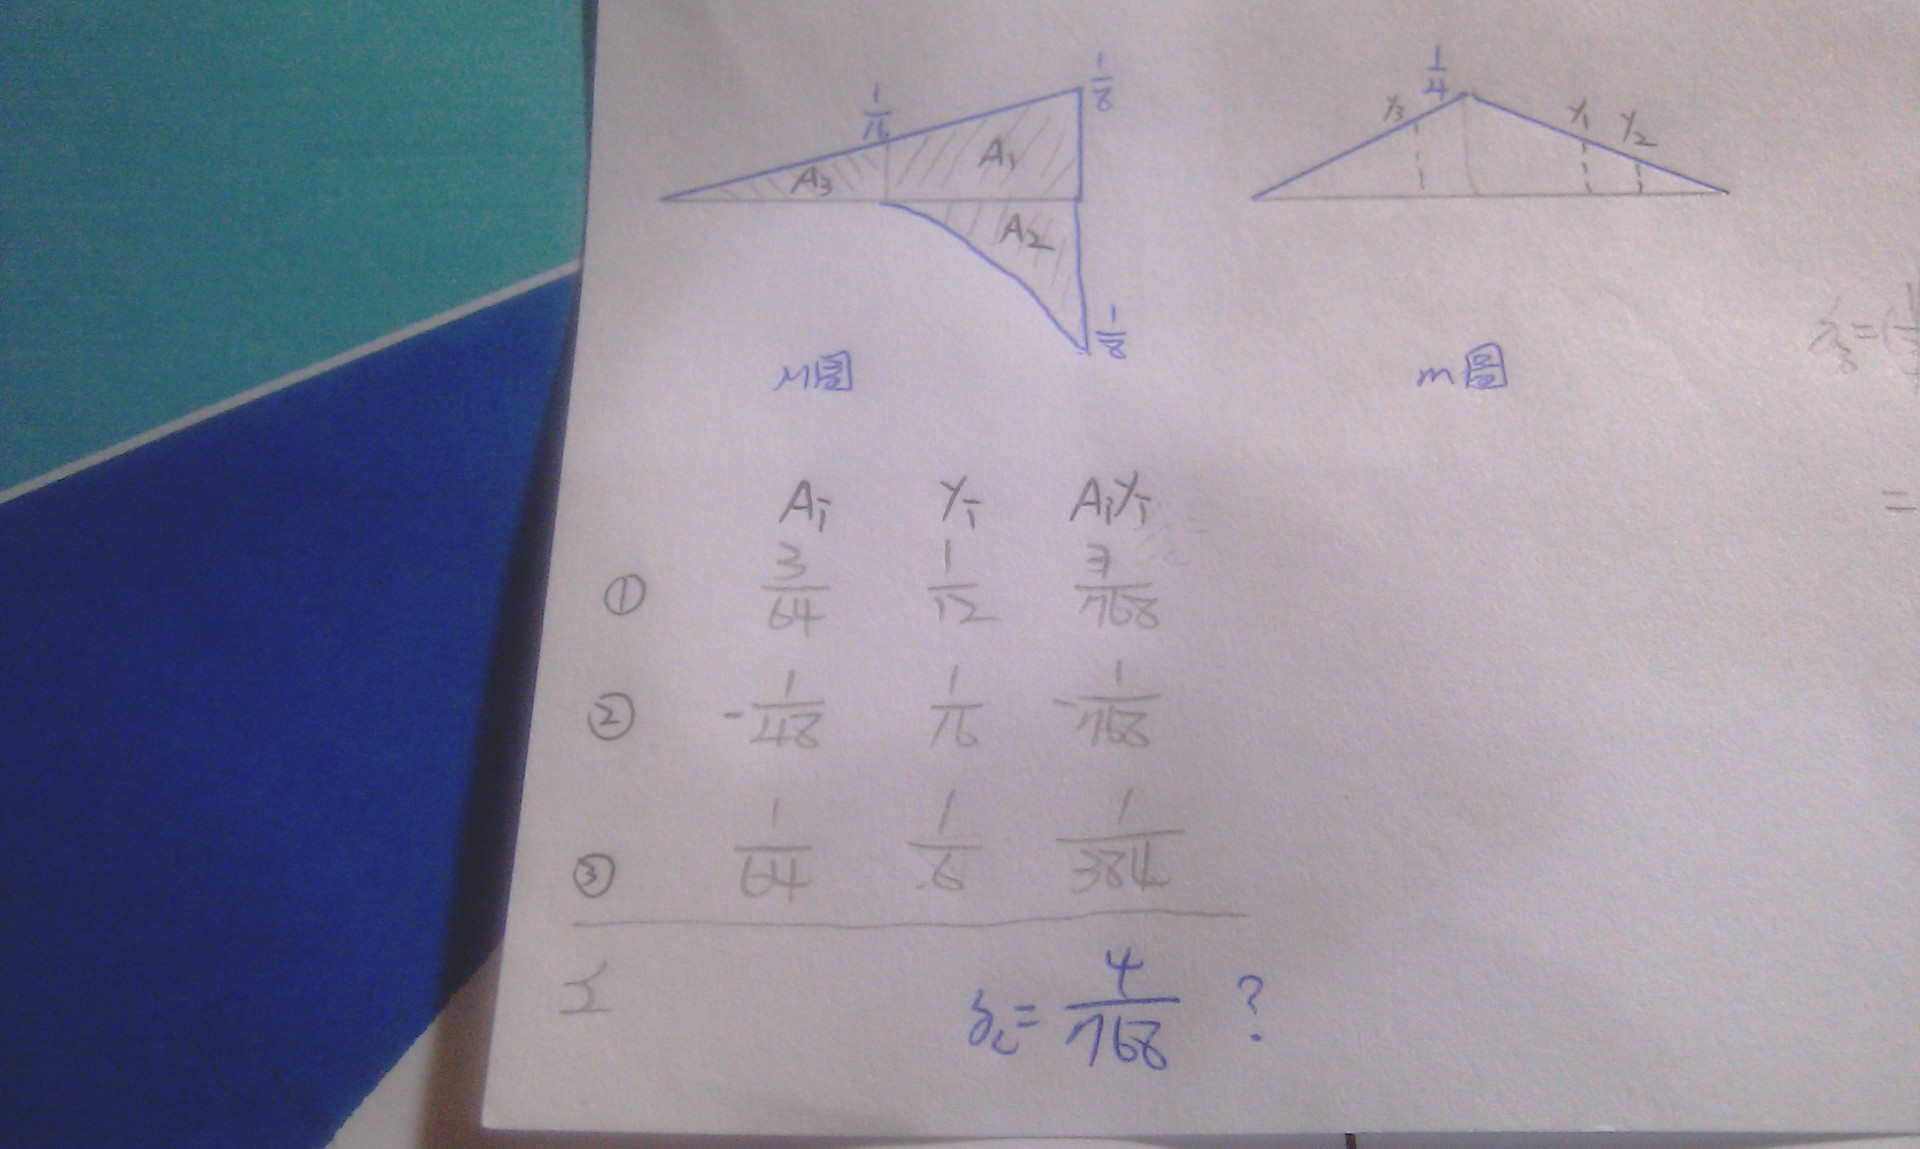 1/16
1/8
A3
A1
A2
1/8
M圖
1/4
y3
y1
y2
m圖
Ai yi Aiyi
① 3/64 1/12 3/768
② -1/48 1/16 -1/768
③ 1/64 1/6 1/384
Σ δc = 4/768 ?
=